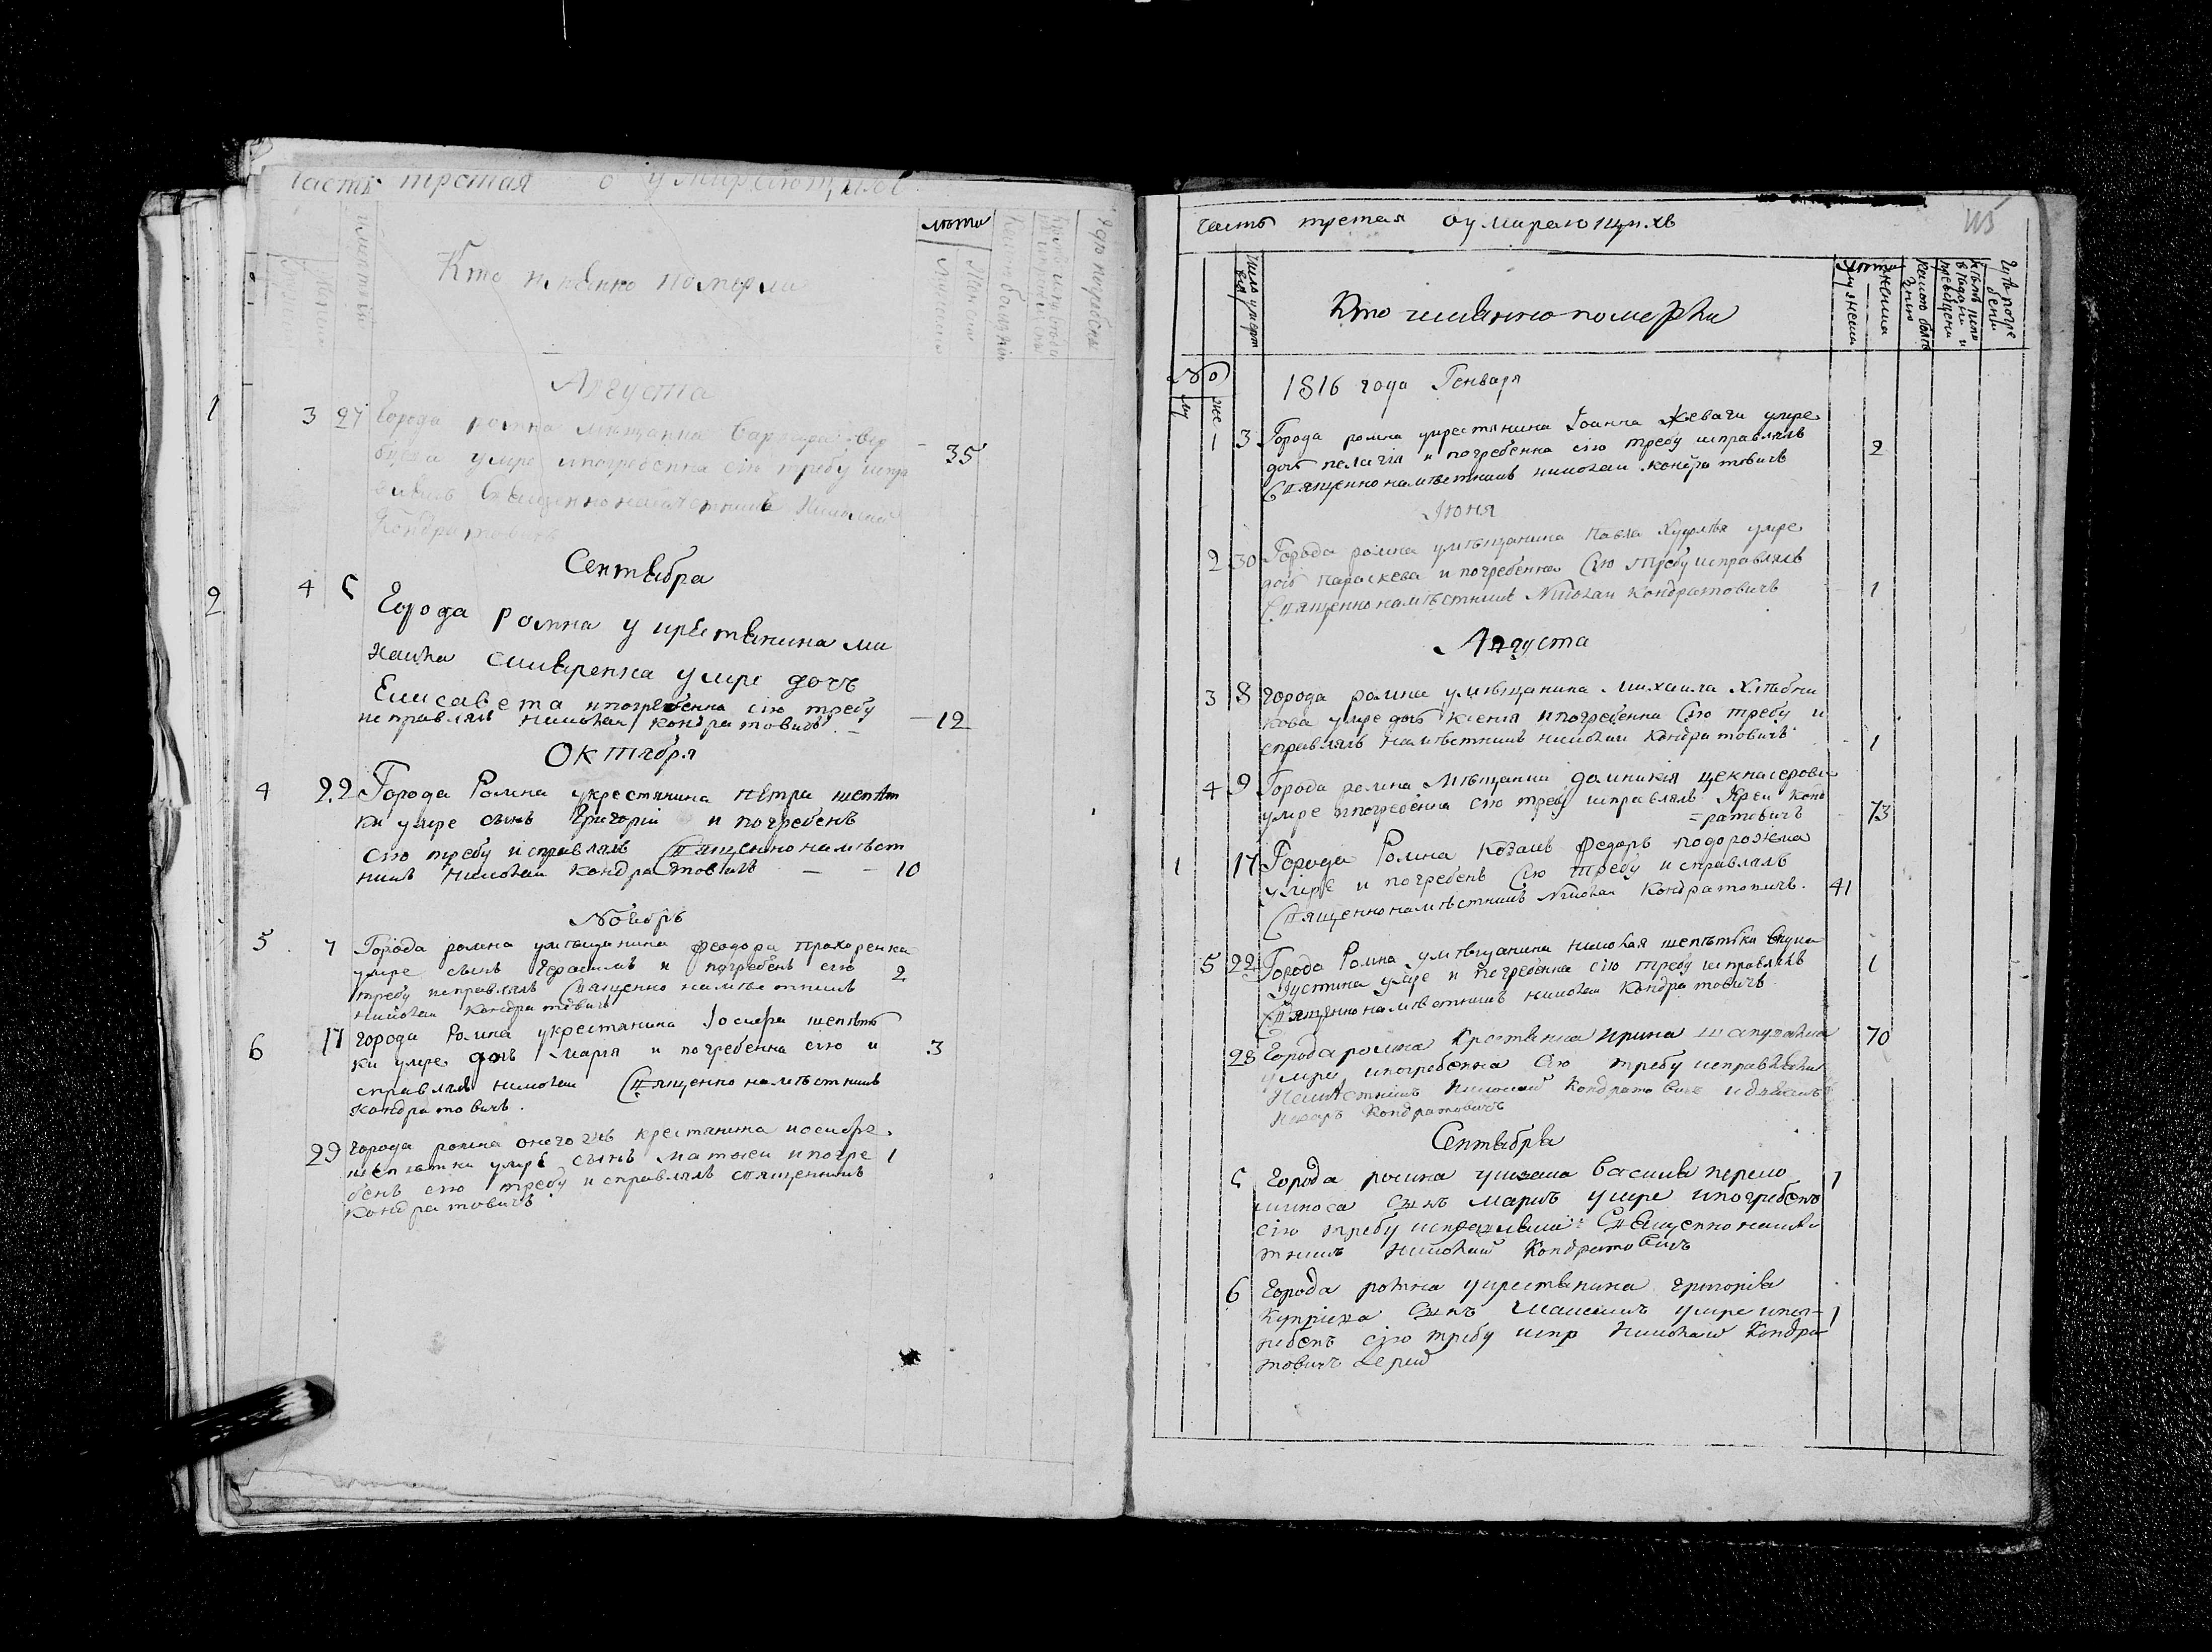 Часть третая о умирающихъ
лѣта
Кто имянно померли
Августа
1 3 27 Города ромна мещанка
умре и погребенна сію требу испра
Священнонамѣстникъ Николай
Кондратовичъ
35
Сентября
2 4 5 Города Ромна у крестянина ми
хаила умре дочъ
Елисавета и погребенна сію требу
исправлялъ Николай Кондратовичъ. — 12
Октября
4 22 Города Ромна у крестянина петра шепѣт
ки умре сынъ Григорій и погребенъ
сію требу исправлялъ Священнонамѣст
никъ Николай Кондратовичъ — — 10
Ноябръ
5 7 Города ромна у мѣщанина феодора Прохоренка
умре сынъ Герасимъ и погребенъ сію 2
требу исправлялъ Священно намѣстникъ
Николай Кондратовичъ
6 17 Города Ромна у крестянина Іосифа шепѣт
ки умре дочь Марія и погребенна сію и 3
справлялъ Николай Священно намѣстникъ
Кондратовичъ.
29 Города ромна оного жъ крестянина иосифа
шепѣтки умре сынъ матфей и погре 1
бенъ сію требу исправлялъ священникъ
Кондратовичъ
часть третая о умирающихъ
115
Число умертвія
Кто имянно померли
лѣта
мужеска
женска
какою болѣзнию
Гдѣ погребени
му же
1816 года Генваря
1 3 Города ромна у крестянина Іоанна Жеваги умре
дочь пелагія и погребенна сію требу исправлялъ 2
Священнонамѣстникъ Николай Кондратовичъ
Іюня
2 30 Города ромна у мѣщанина Павла умре
дочь Параскева и погребенна Сію требу исправлялъ
Священнонамѣстникъ Николай Кондратовичъ 1
Августа
3 8 города ромна у мѣщанина Михаила Хлѣбни
кова умре дочь Ксенія и погребенна Сію требу и
справлялъ намѣстникъ Николай Кондратовичъ 1
4 9 Города ромна Мѣщанка домникія
умре и погребенна сію требу исправлялъ Иреи Конд
=ратовичъ 73
1 17 Города Ромна козакъ федоръ подорожна
умре и погребенъ Сію требу исправлялъ
Священнонамѣстникъ Николай Кондратовичъ. 41
5 22 Города Ромна у мѣщанина Николая шепѣтки внука
Іустина умре и погребенна сію требу исправлялъ 1
Священнонамѣстникъ Николай Кондратовичъ
28 Города ромна Крестянка Ирина 70
умре и погребенна Сію требу исправляли
Намѣстникъ Николай Кондратовичъ и
Кондратовичъ
Сентября
5 Города ромна у козака Василя перело 1
Сынъ Маркъ умре и погребенъ
сію требу Священнонамѣ
стникъ Николай Кондратовичъ
6 Города ромна у крестянина григорія
Купріека Сынъ Максимъ умре и пог- 1
ребенъ сію требу испр Николай Кондра
товичъ Іерей